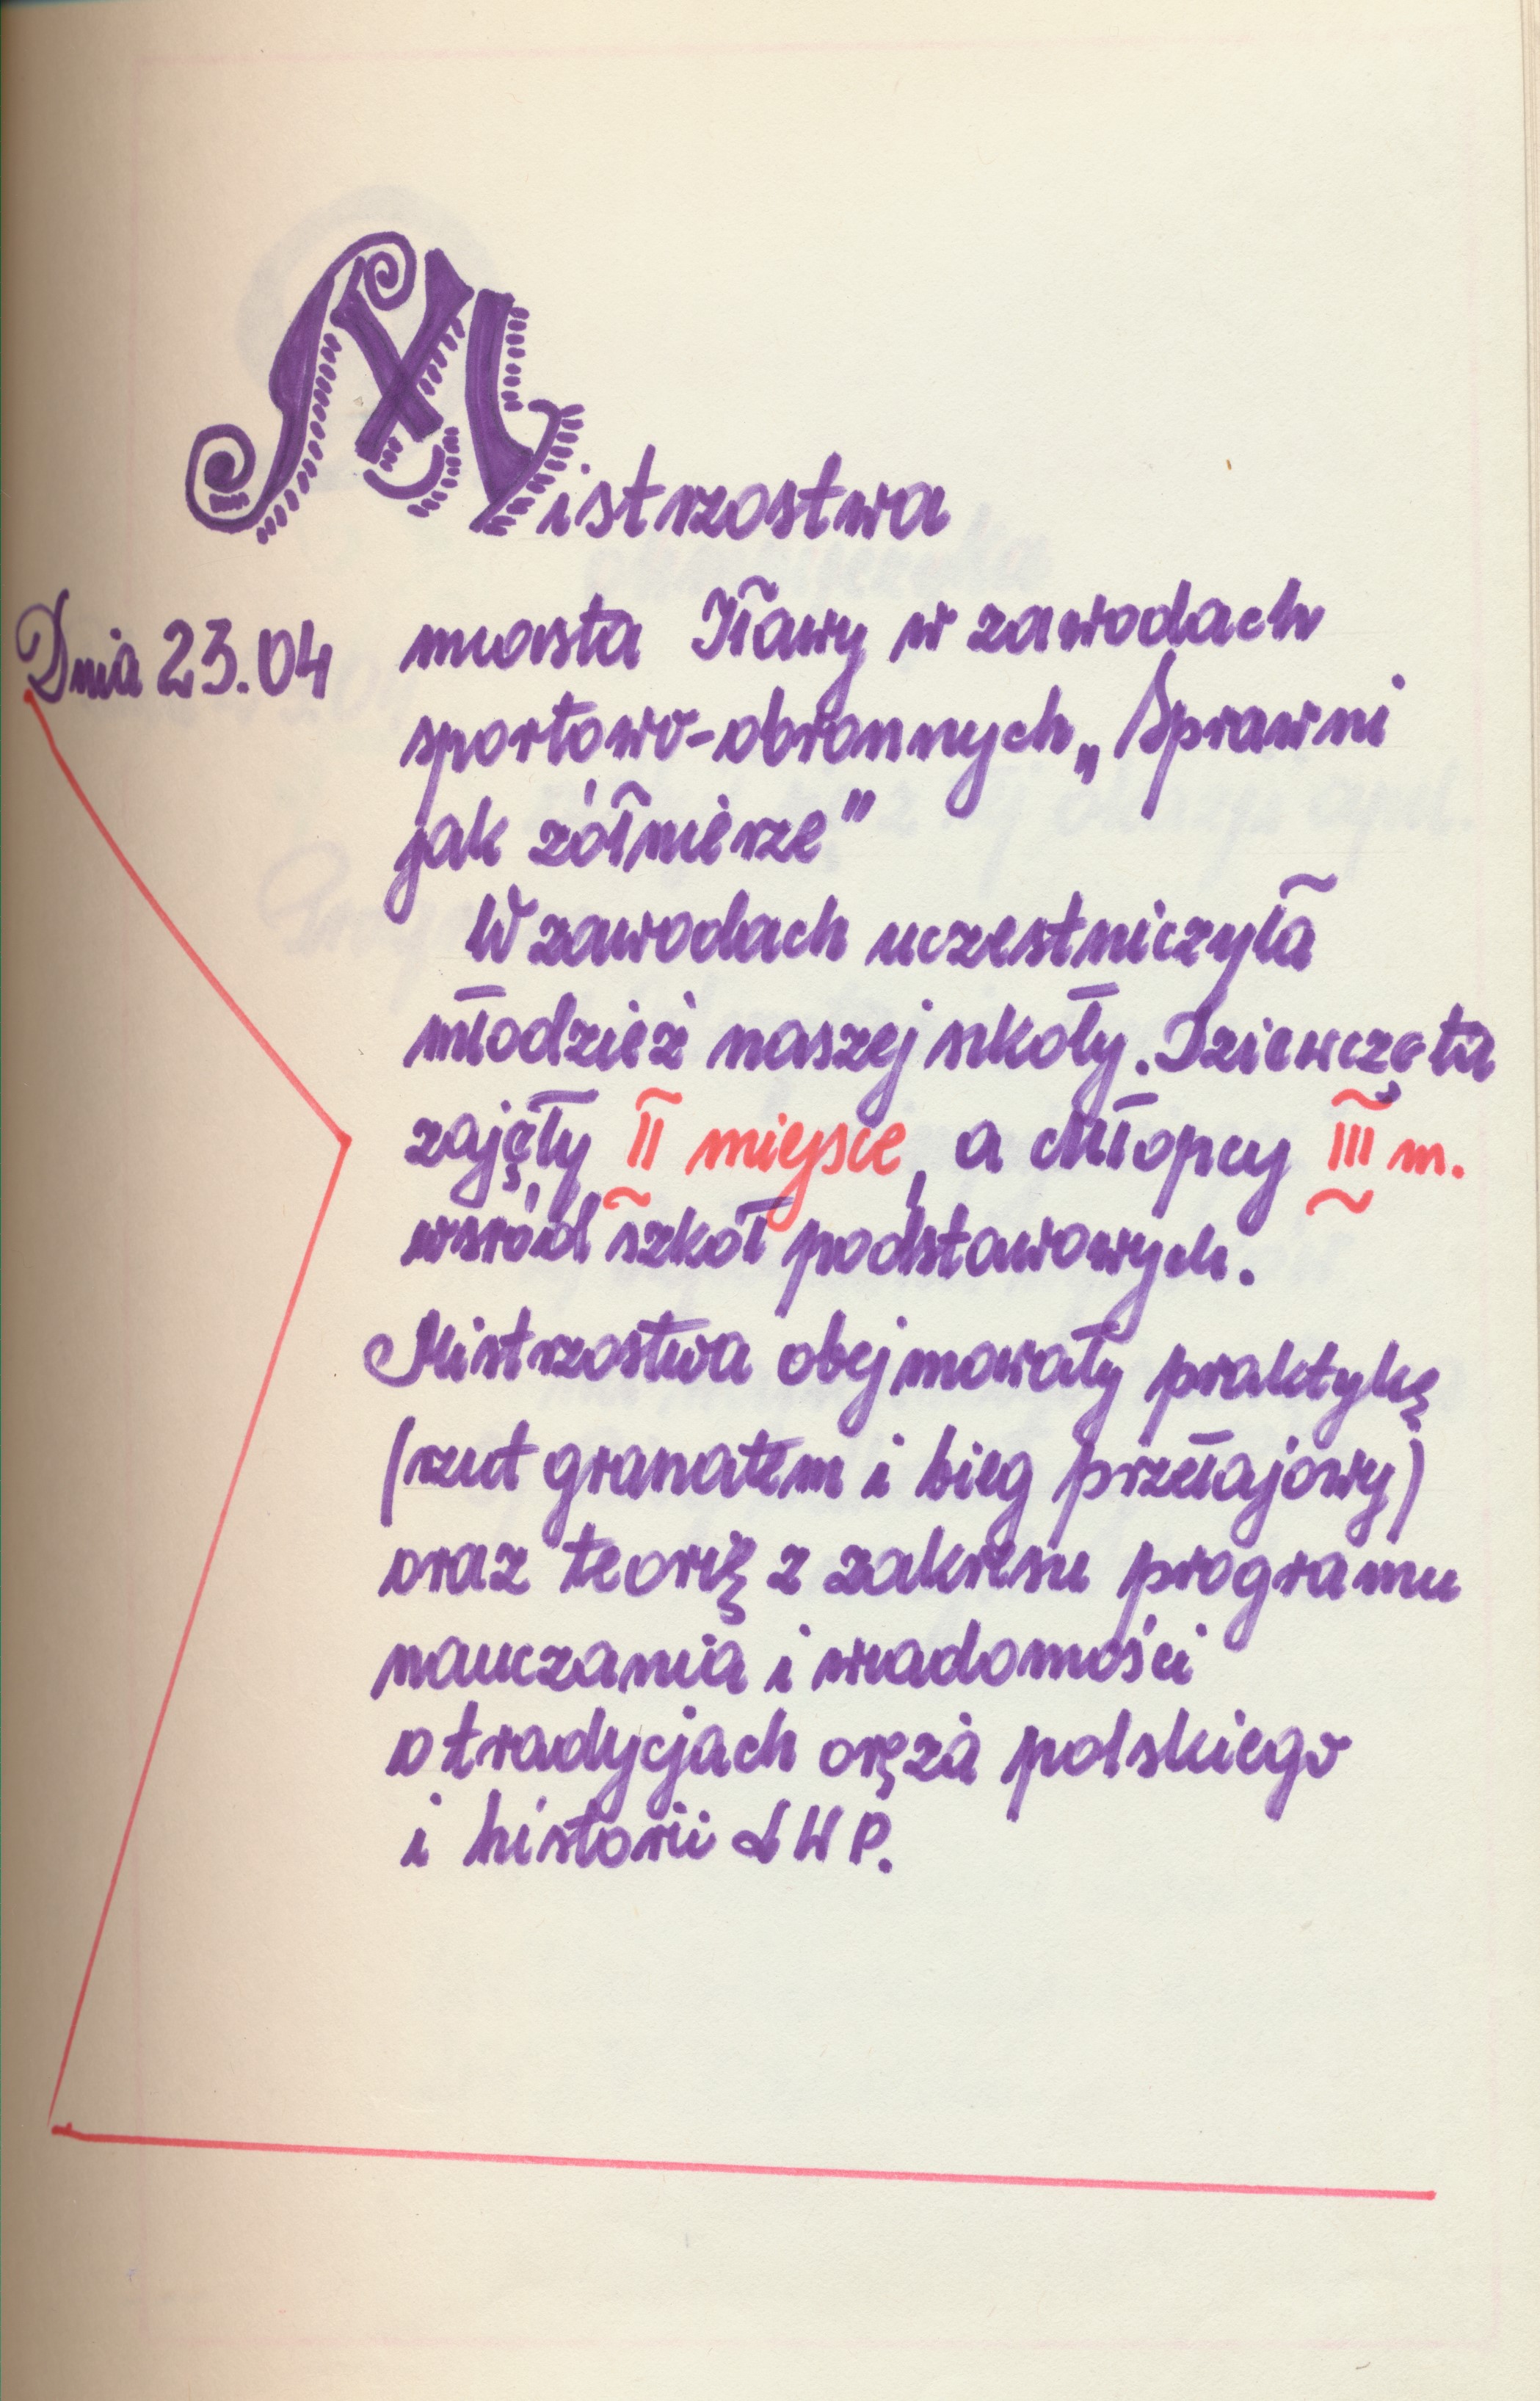 Mistrzostwa
Dnia 23.04
miasta Iławy w zawodach
sportowo-obronnych „Sprawni
jak żółnierze"
W zawodach uczestniczyła
młodzież naszej szkoły. Dziewczęta
zajęły II miejsce, a chłopcy III m.
wsród szkół podstawowych.
Mistrzostwa obejmowały praktykę
(rzut granatem i bieg przełajowy)
oraz teorię z zakresu programu
nauczania i wiadomości
o tradycjach oręża polskiego
i historii LWP.